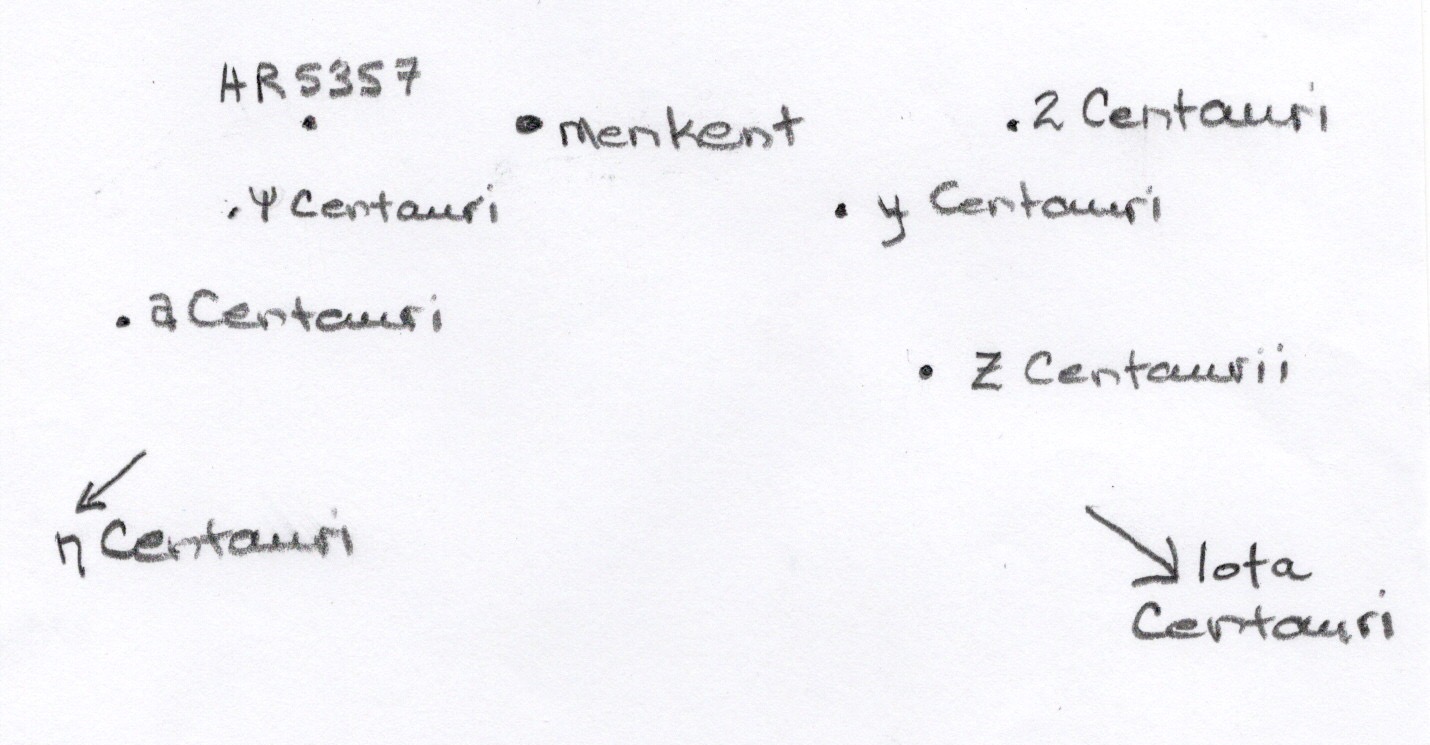 HR5357
menkent
2 Centauri
Ψ Centauri
y Centauri
a Centauri
Z Centaurii
η Centauri
Iota
Centauri